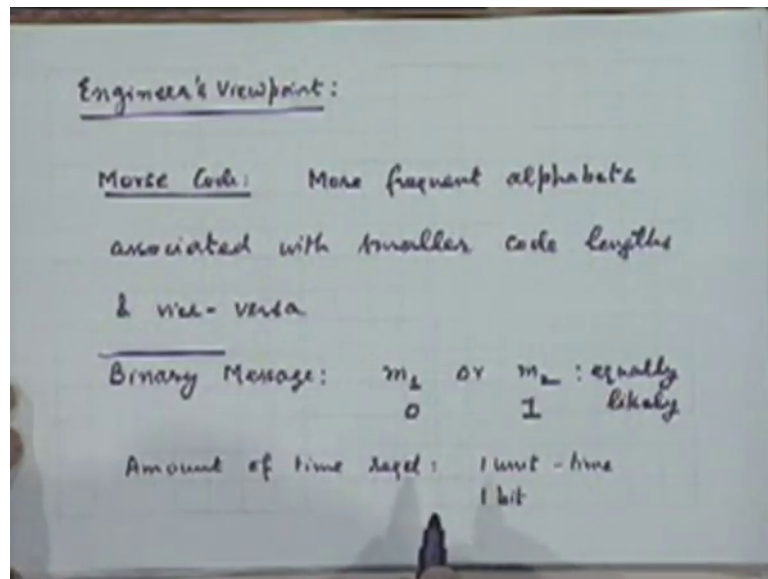 Engineer's Viewpoint:
Morse Code: More frequent alphabets
associated with smaller code lengths
& vice-versa
Binary Message: m1 or m2 : equally
0 1 likely
Amount of time reqd: 1 unit-time
1 bit